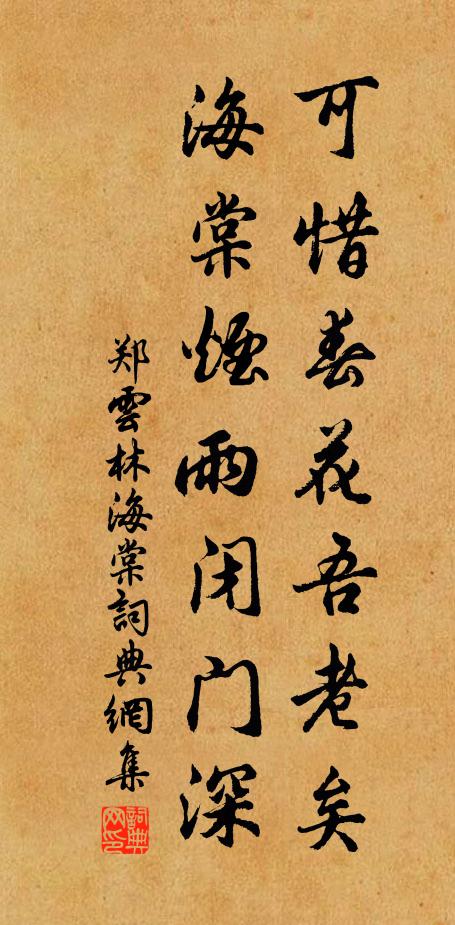 可惜春花吾老矣
海棠煙雨闭门深
郑雲林海棠詞典網集
詞典网印